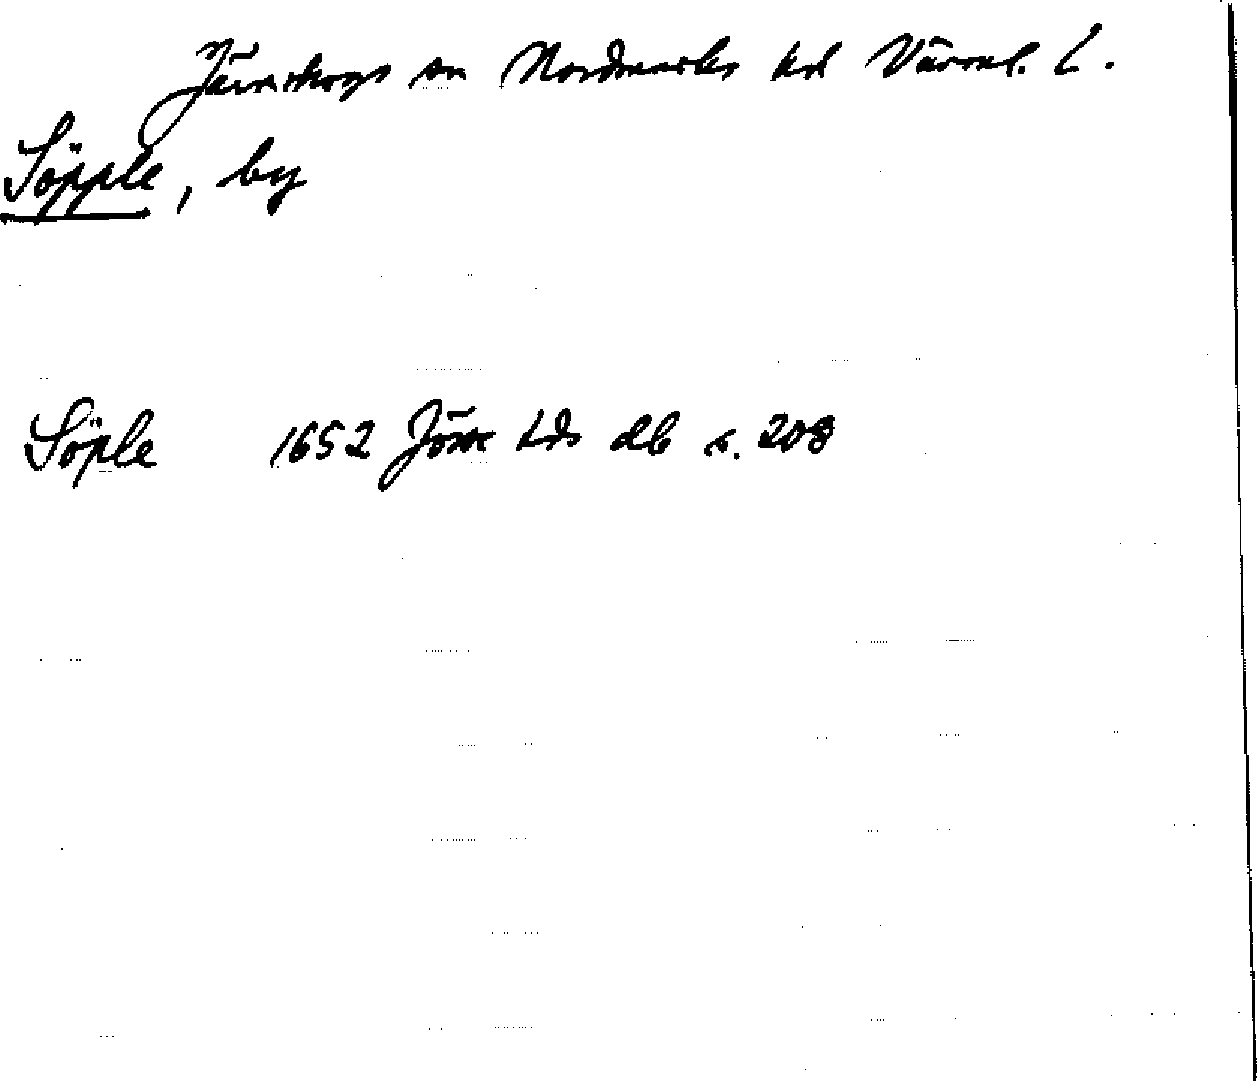 Järnskogs sn Nordmarks hd Värml. L.
Söpple, by
Söple 1652 Jösse hds db s. 208